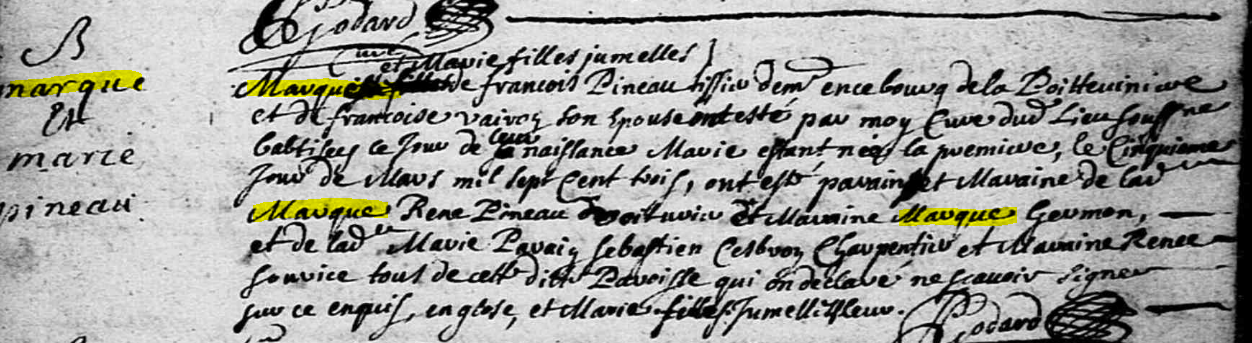 Godard
B
marque
Et
marie
pineau
et Marie filles jumelles
Marque de francois Pineau tissier dem^t en ce bourg de la Poitteviniere
et de francoise vairon son Epouse ont esté par moy Curé dud^t Lieu soussigne
baptisees ce Jour de leur naissance Marie estant nee la premiere, le Cinquieme
Jour de Mars mil sept Cent trois, ont esté parain et Maraine de lad^e
Marque René Pineau et Maraine Marque Germon,
et de lad^e Marie Parain Sebastien Cesbron Charpentier et Maraine Renee
Sourice tous de cette ditte Paroisse qui ont declaré ne scavoir signer
sur ce enquis, en glose, et Marie filles Jumelles leur.
Godard